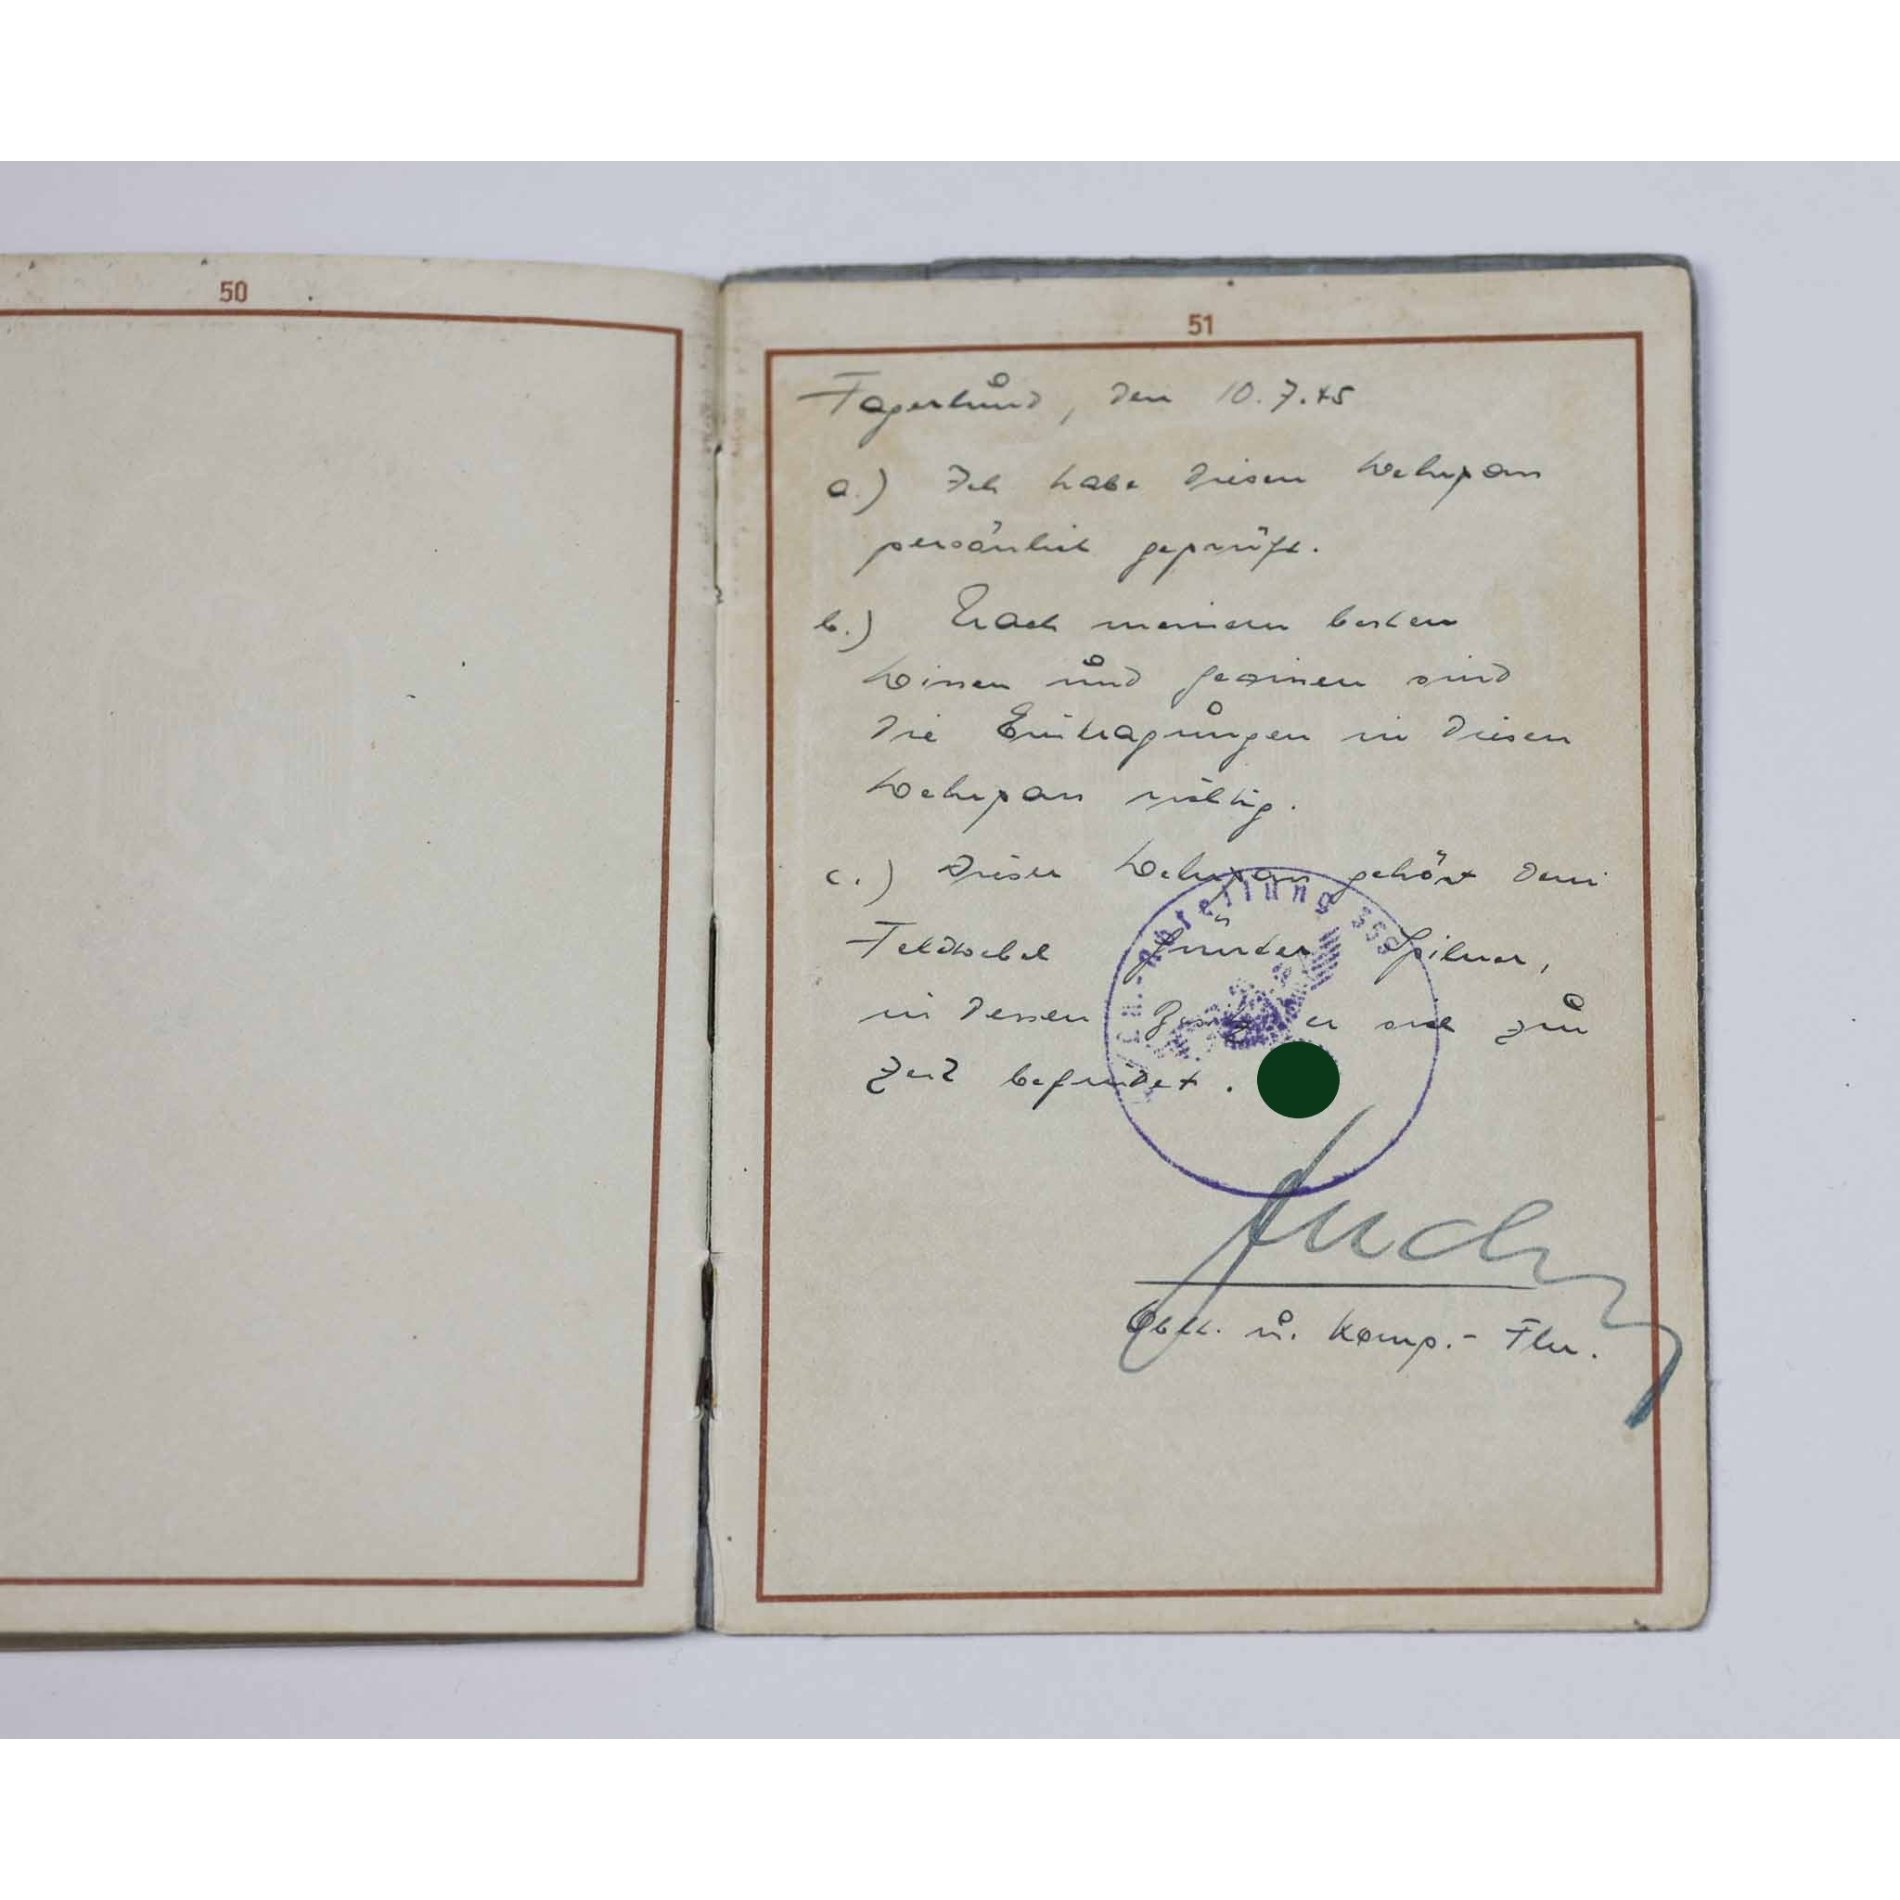 50
51
Fagerlund, den 10.7.45
a.) Ich habe diesen Wehrpass
persönlich geprüft.
b.) Nach meinem besten
Wissen und Gewissen sind
die Eintragungen in diesem
Wehrpass richtig.
c.) Dieser Wehrpass gehört dem
Feldwebel Günter
in dessen Besitz er sich zur
Zeit befindet.
Abteilung 359
Oblt. u. Komp.-Fhr.